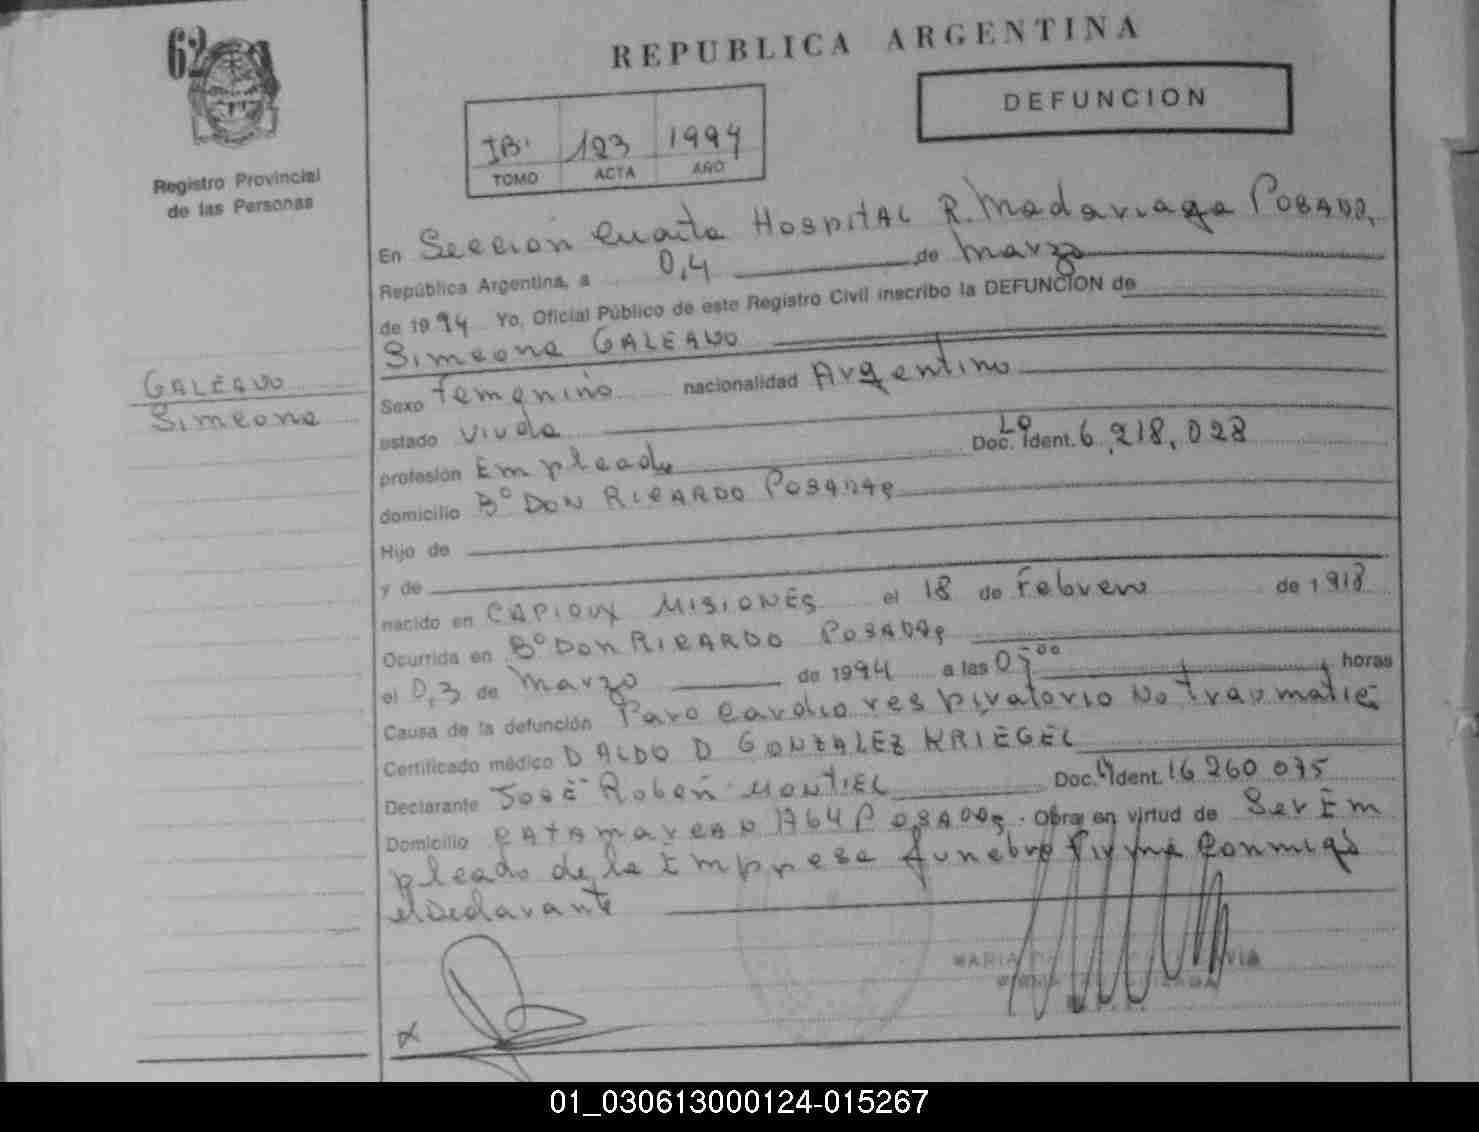 62
REPUBLICA ARGENTINA
DEFUNCION
Registro Provincial
de las Personas
IBⁱ 123 1994
TOMO ACTA AÑO
En Seccion Cuarta Hospital R. Madariaga Posadas
República Argentina, a 0,4 de Marzo
de 1994 Yo, Oficial Público de este Registro Civil inscribo la DEFUNCION de
Simeona GALEANO
GALEANO
Simeona
Sexo femenino nacionalidad Argentino
estado Viuda
profesión Empleada Doc. Ident. 6,218,028
domicilio B° DON RICARDO POSADAS
Hijo de
y de
nacido en CAPIOVY MISIONES el 18 de Febrero de 1918
Ocurrida en B° DON RICARDO POSADAS
el 0,3 de Marzo de 1994 a las 05⁰⁰ horas
Causa de la defunción Paro Cardio respiratorio No traumatic
Certificado médico D ALDO D GONZALEZ KRIEGEL
Declarante José Ruben MONTIEL Doc. Ident. 16 260 075
Domicilio CATAMARCA N 1764 POSADAS. Obra en virtud de Ser Em
pleado de la Empresa funebre firma Conmigo
el Declarante
MARIA
01_030613000124-015267